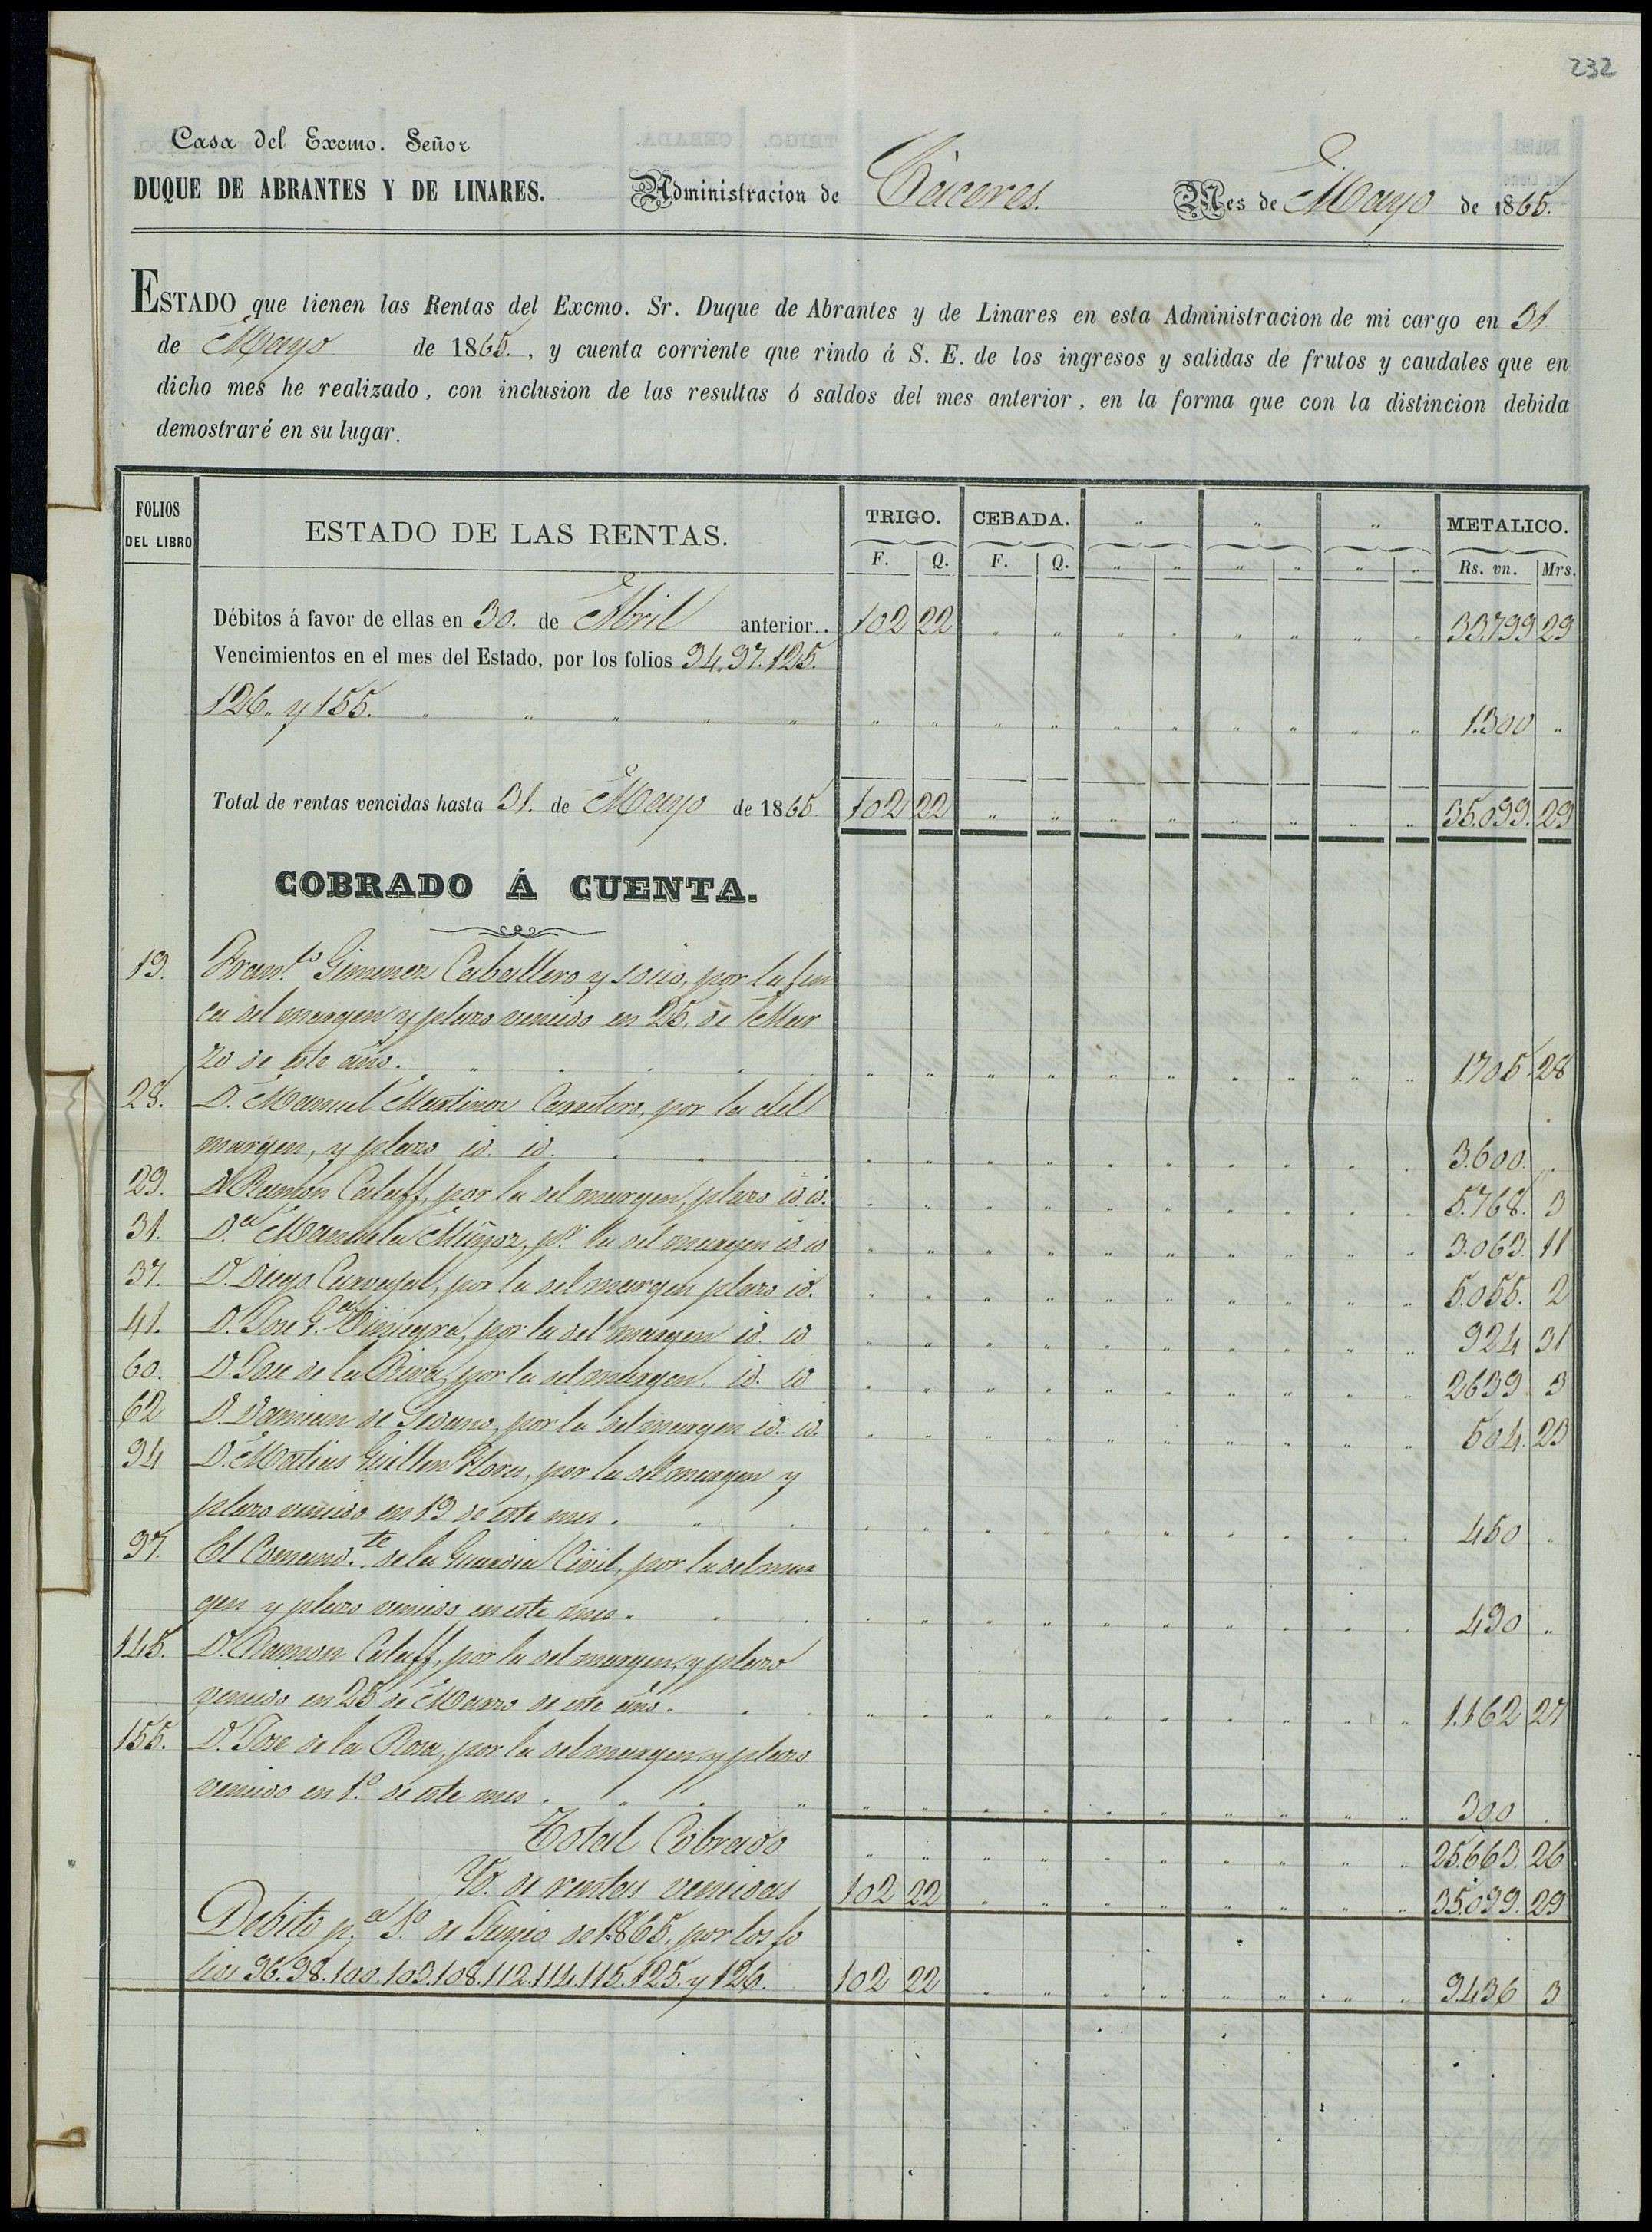 232
Casa del Excmo. Señor
DUQUE DE ABRANTES Y DE LINARES. Administracion de Cáceres. Mes de Mayo de 1865.
ESTADO que tienen las Rentas del Excmo. Sr. Duque de Abrantes y de Linares en esta Administracion de mi cargo en 31
de Mayo de 1865. , y cuenta corriente que rindo á S. E. de los ingresos y salidas de frutos y caudales que en
dicho mes he realizado, con inclusion de las resultas ó saldos del mes anterior, en la forma que con la distincion debida
demostraré en su lugar.
FOLIOS DEL LIBRO ESTADO DE LAS RENTAS. TRIGO. CEBADA. " " " METALICO.
F. Q. F. Q. " " " " " " Rs. vn. Mrs.
Débitos á favor de ellas en 30. de Abril anterior.. 102 22 " " " " " " " " 33.799 29
Vencimientos en el mes del Estado, por los folios 94.97.125.
126. y 155. " " " " " " " " " " " " " " " 1.300 "
Total de rentas vencidas hasta 31. de Mayo de 1865. 102 22 " " " " " " " " 35.099. 29
COBRADO Á CUENTA.
19. Fran.co Gimenez Caballero y socio, por la fin
ca del margen y plazo vencido en 25. de Mar
zo de este año. " " " " " " " " " " 1705. 28
28. D. Manuel Martinez Carretero, por la del
margen, y plazo id. id. " " " " " " " " " " 3.600. "
29. D. Ramon Calaff, por la del margen, plazo id id. " " " " " " " " " " 5.768. 3
31. D.a Manuela Muñoz, p.r la del margen id id " " " " " " " " " " 3.063. 11
37. D. Diego Carvajal, por la del margen plazo id. " " " " " " " " " " 5.055. 2
41. D. Jose G.a Viniegra, por la del margen id. id " " " " " " " " " " 924 31
60. D. Jose de la Riva, por la del margen. id. id " " " " " " " " " " 2639 3
62 D. Damian de Sedano, por la del margen id. id. " " " " " " " " " " 504. 23
94 D. Matias Guillen Flores, por la del margen y
plazo vencido en 19 de este mes. " " " " " " " " " " 450 "
97. El Comand.te de la Guardia Civil, por la del mar
gen y plazo vencido en este mes. " " " " " " " " " " 490 "
145. D. Ramon Calaff, por la del margen, y plazo
vencido en 25 de Marzo de este año. " " " " " " " " " " 1.162 27
155. D. Jose de la Rosa, por la del margen y plazo
vencido en 1.o de este mes. " " " " " " " " " " 300 "
Total Cobrado " " " " " " " " " " 25.663. 26
Yd. de rentas vencidas 102 22 " " " " " " " " 35.099. 29
Debito p.a 1.o de Junio de 1865, por los fo
lios 96.98.100.103.108.112.114.115.125. y 126. 102 22 " " " " " " " " 9.436 3